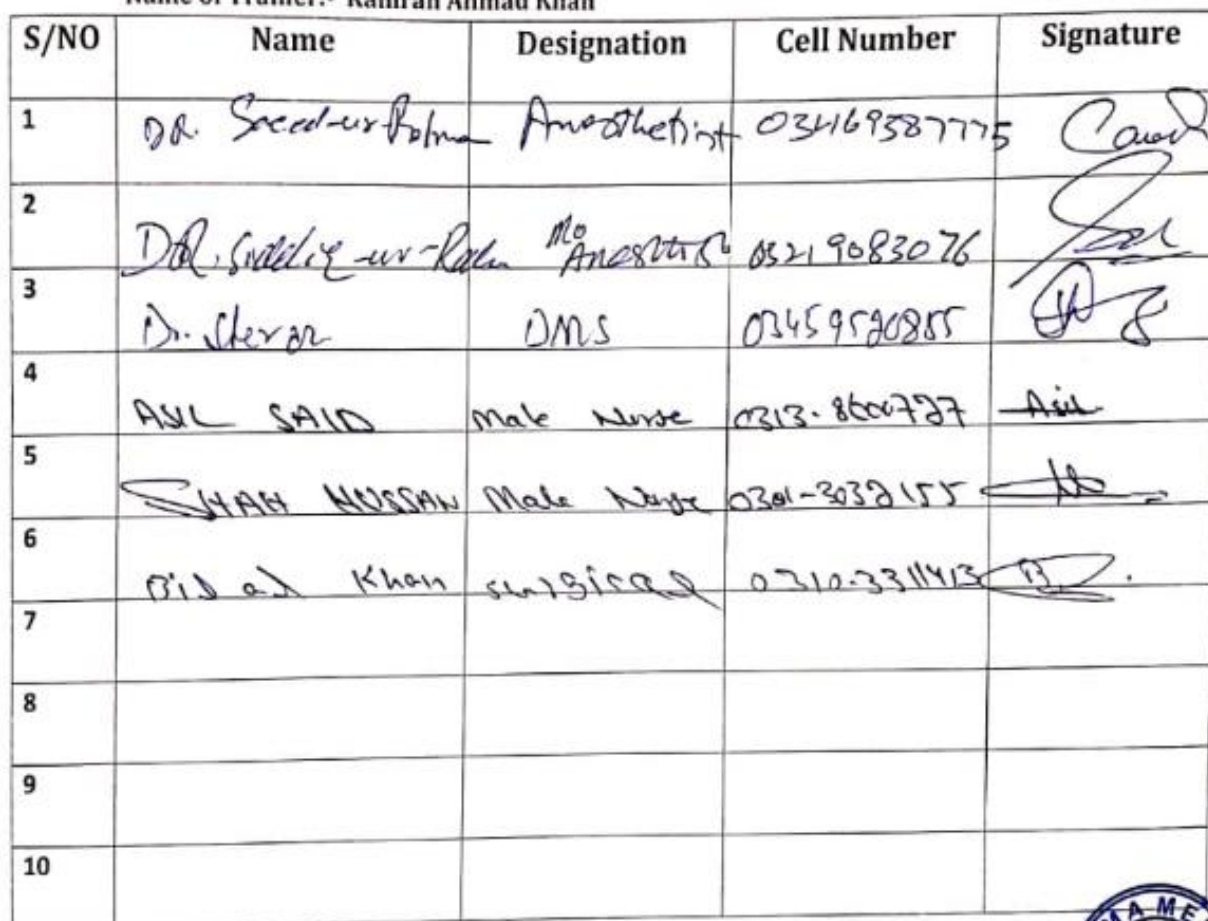 Name of Trainer:- Kamran Ahmad Khan
S/NO Name Designation Cell Number Signature
1 DR. Saeed-ur-Rahman Anesthetist 03469587775
2 DR. Siddiq-ur- MO 03219083076
3 Dr. DMS 03459520855
4 ASIL SAID Male Nurse 0313- Asil
5 SHAH HUSSAN Male Nurse 0301-3032155
6 Bilal Khan surgical 0310-3311413
7
8
9
10